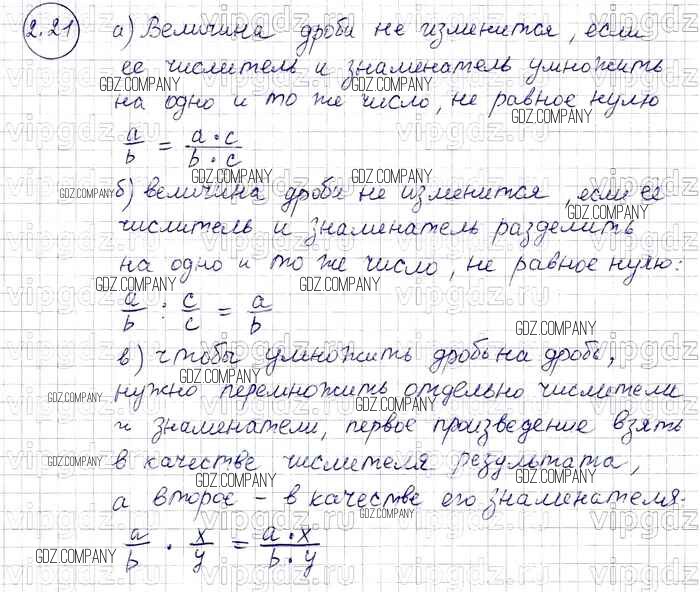 2.21 а) Величина дроби не изменится, если
ее числитель и знаменатель умножить
на одно и то же число, не равное нулю
a/b = a·c/b·c
б) величина дроби не изменится, если ее
числитель и знаменатель разделить
на одно и то же число, не равное нулю:
a/b : c/c = a/b
в) чтобы умножить дробь на дробь,
нужно перемножить отдельно числители
и знаменатели, первое произведение взять
в качестве числителя результата,
а второе – в качестве его знаменателя.
a/b · x/y = a·x/b·y
GDZ.COMPANY
vipgdz.ru